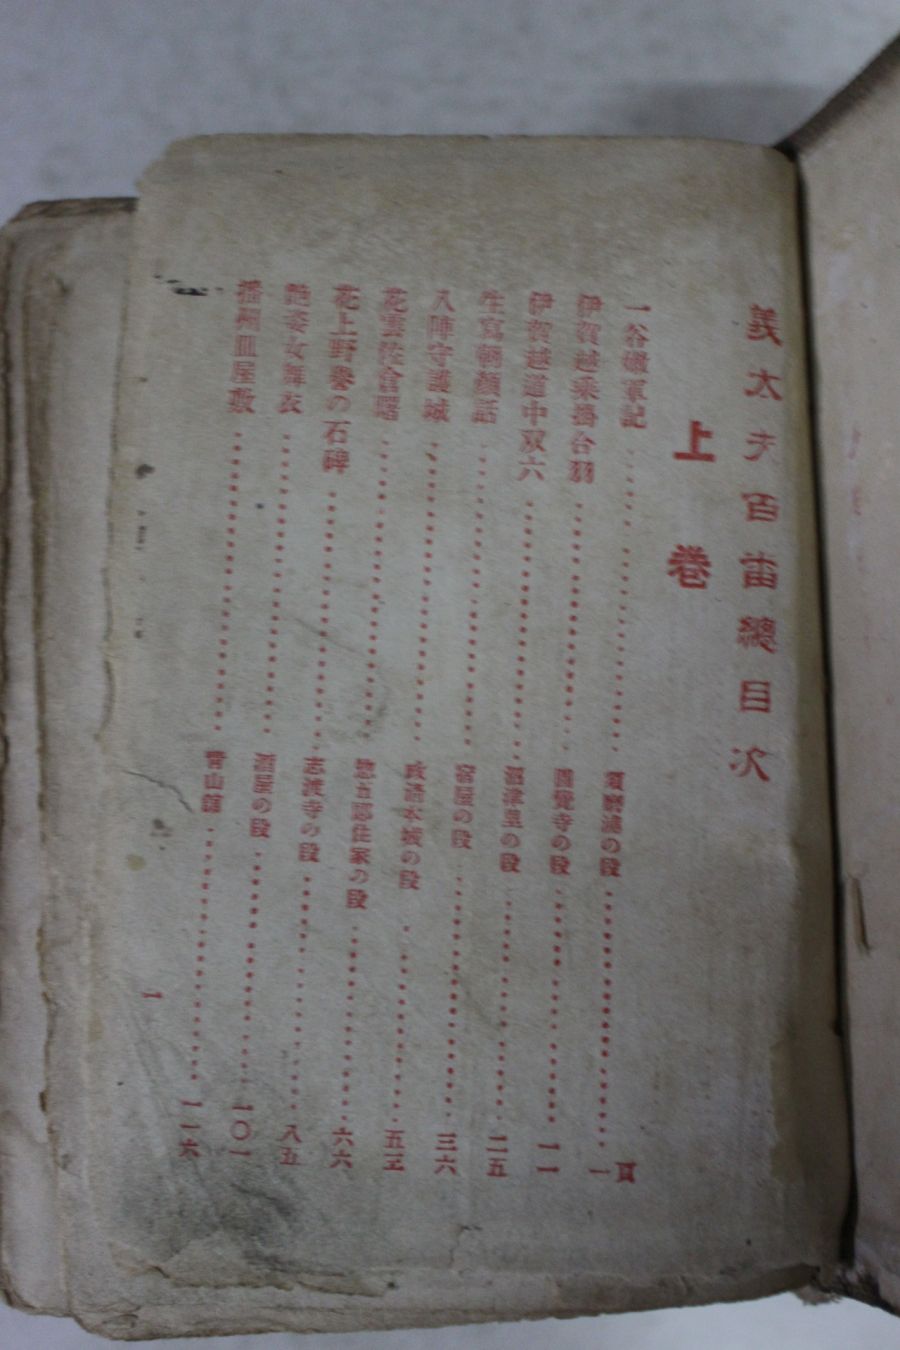 義太夫百番總目次
上卷
頁
一谷嫩軍記……須磨浦の段……一
伊賀越乘掛合羽……圓覺寺の段……一一
伊賀越道中双六……沼津里の段……二五
生寫朝顏話……宿屋の段……三六
八陣守護城……政淸本城の段……五三
花雲佐倉曙……惣五郎住家の段……六六
花上野譽の石碑……志渡寺の段……八五
艶姿女舞衣……酒屋の段……一〇一
播州皿屋敷……靑山館……一一六
一